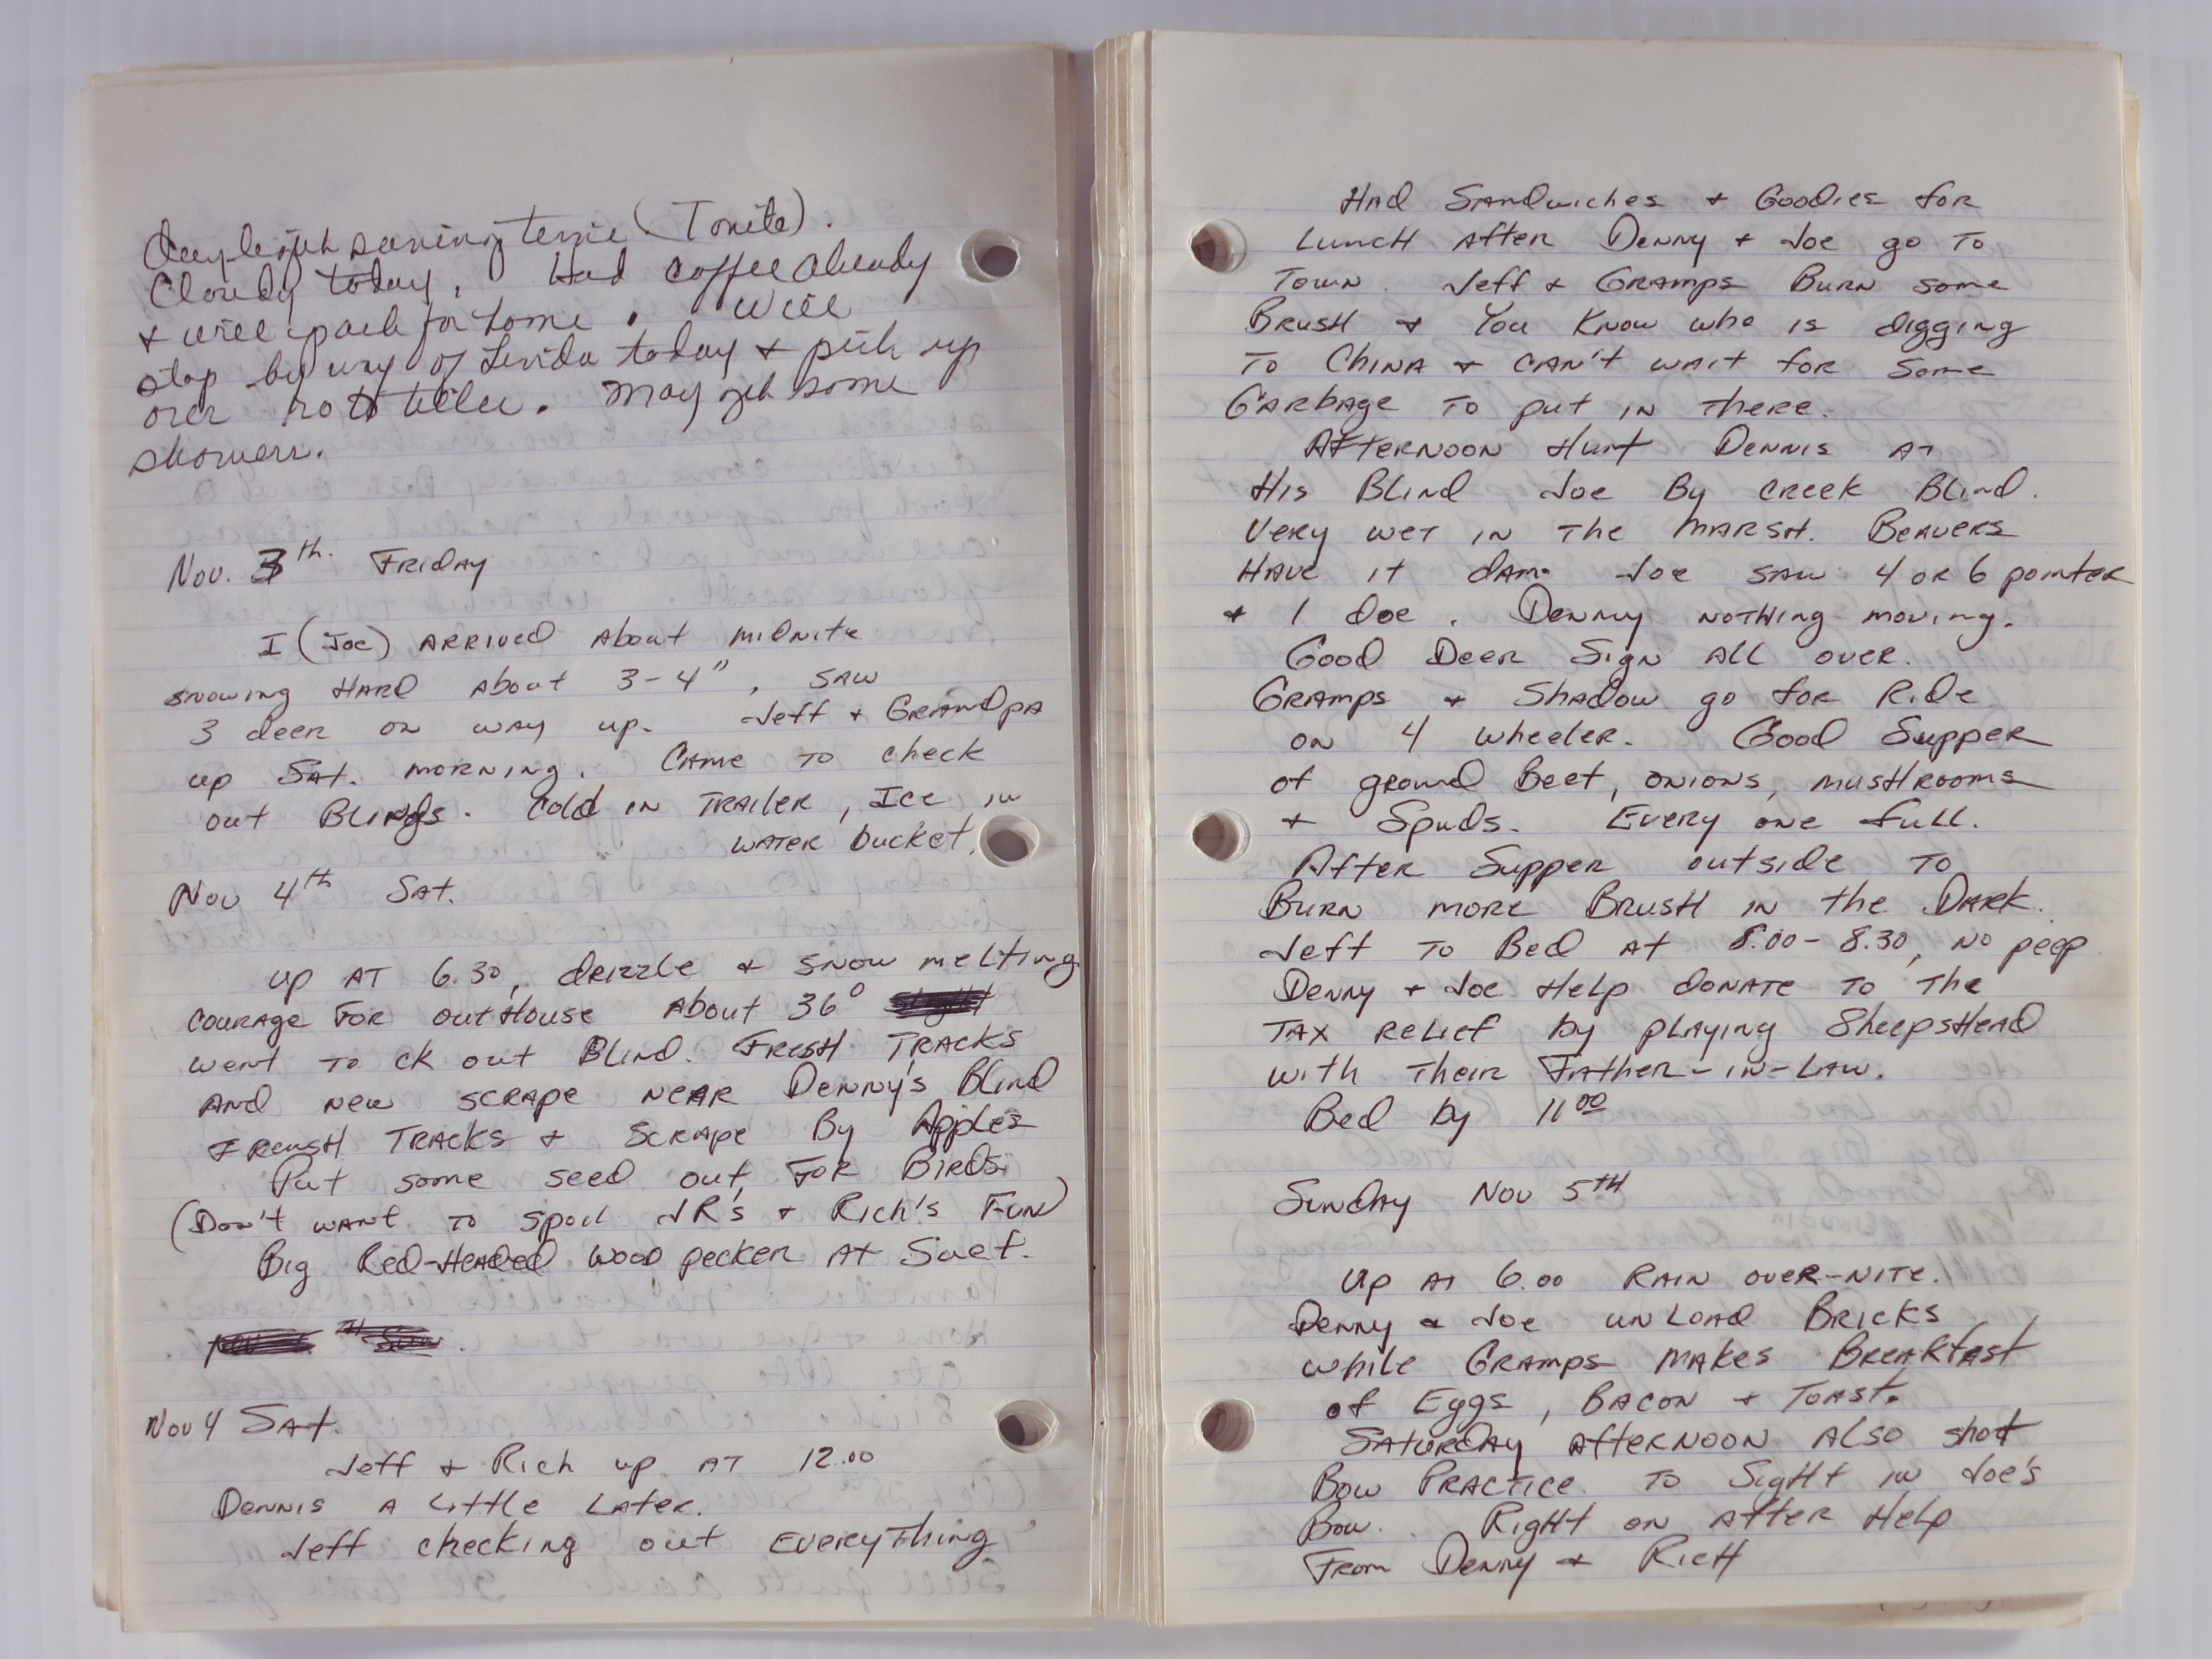 Daylight saving time (Tonite).
Cloudy today. Had coffee already
& will pack for home. Will
stop by way of Linda today & pick up
over roto tiller. May get some
showers.
Nov. 3th. Friday
I (Joe) arrived about midnite
snowing hard about 3-4", saw
3 deer on way up. Jeff & Grandpa
up Sat. morning. Came to check
out Blinds. Cold in trailer, Ice in
water bucket.
Nov 4th Sat.
up at 6.30, drizzle & snow melting
courage for outhouse about 36°
went to ck out Blind. Fresh Tracks
and new scrape near Denny's Blind
Freush Tracks & scrape By Apples
Put some seed out for Birds.
(Don't want to spoil JR's & Rich's Fun)
Big Red-Headed wood pecker at Suet.
Nov 4 Sat.
Jeff & Rich up at 12.00
Dennis a little later.
Jeff checking out everything
Had Sandwiches & Goodies for
Lunch after Denny & Joe go to
Town. Jeff & Gramps Burn some
Brush & You Know who is digging
to China & can't wait for some
Garbage to put in there.
Afternoon Hunt Dennis at
His Blind Joe By creek Blind.
Very wet in the marsh. Beavers
Have it dam. Joe saw 4 or 6 pointer
& 1 doe. Denny nothing moving.
Good Deer Sign all over.
Gramps & Shadow go for Ride
on 4 wheeler. Good Supper
of ground Beef, onions, mushrooms
& Spuds. Every one full.
After Supper outside to
Burn more Brush in the Dark.
Jeff to Bed at 8.00-8.30, no peep
Denny & Joe Help donate to the
tax relief by playing Sheepshead
with their Father-in-law.
Bed by 11 00
Sunday Nov 5th
Up at 6.00 Rain over-nite.
Denny & Joe unload Bricks
while Gramps makes Breakfast
of Eggs, Bacon & Toast.
Saturday afternoon also shot
Bow Practice. to Sight in Joe's
Bow. Right on after Help
From Denny & Rich